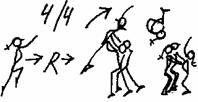 4/4
R